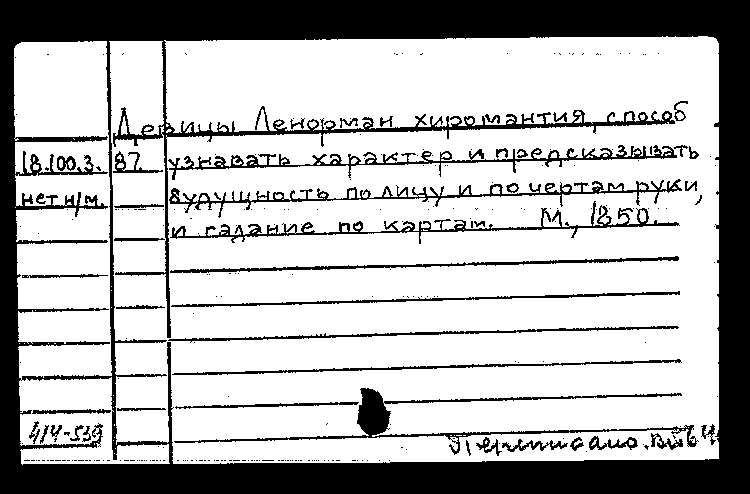 Девицы Ленорман хиромантия, способ
18.100.3. 87 узнавать характер и предсказывать
нет н/м. будущность по лицу и по чертам руки,
и гадание по картам. М., 1850.
414-539
Переписано.